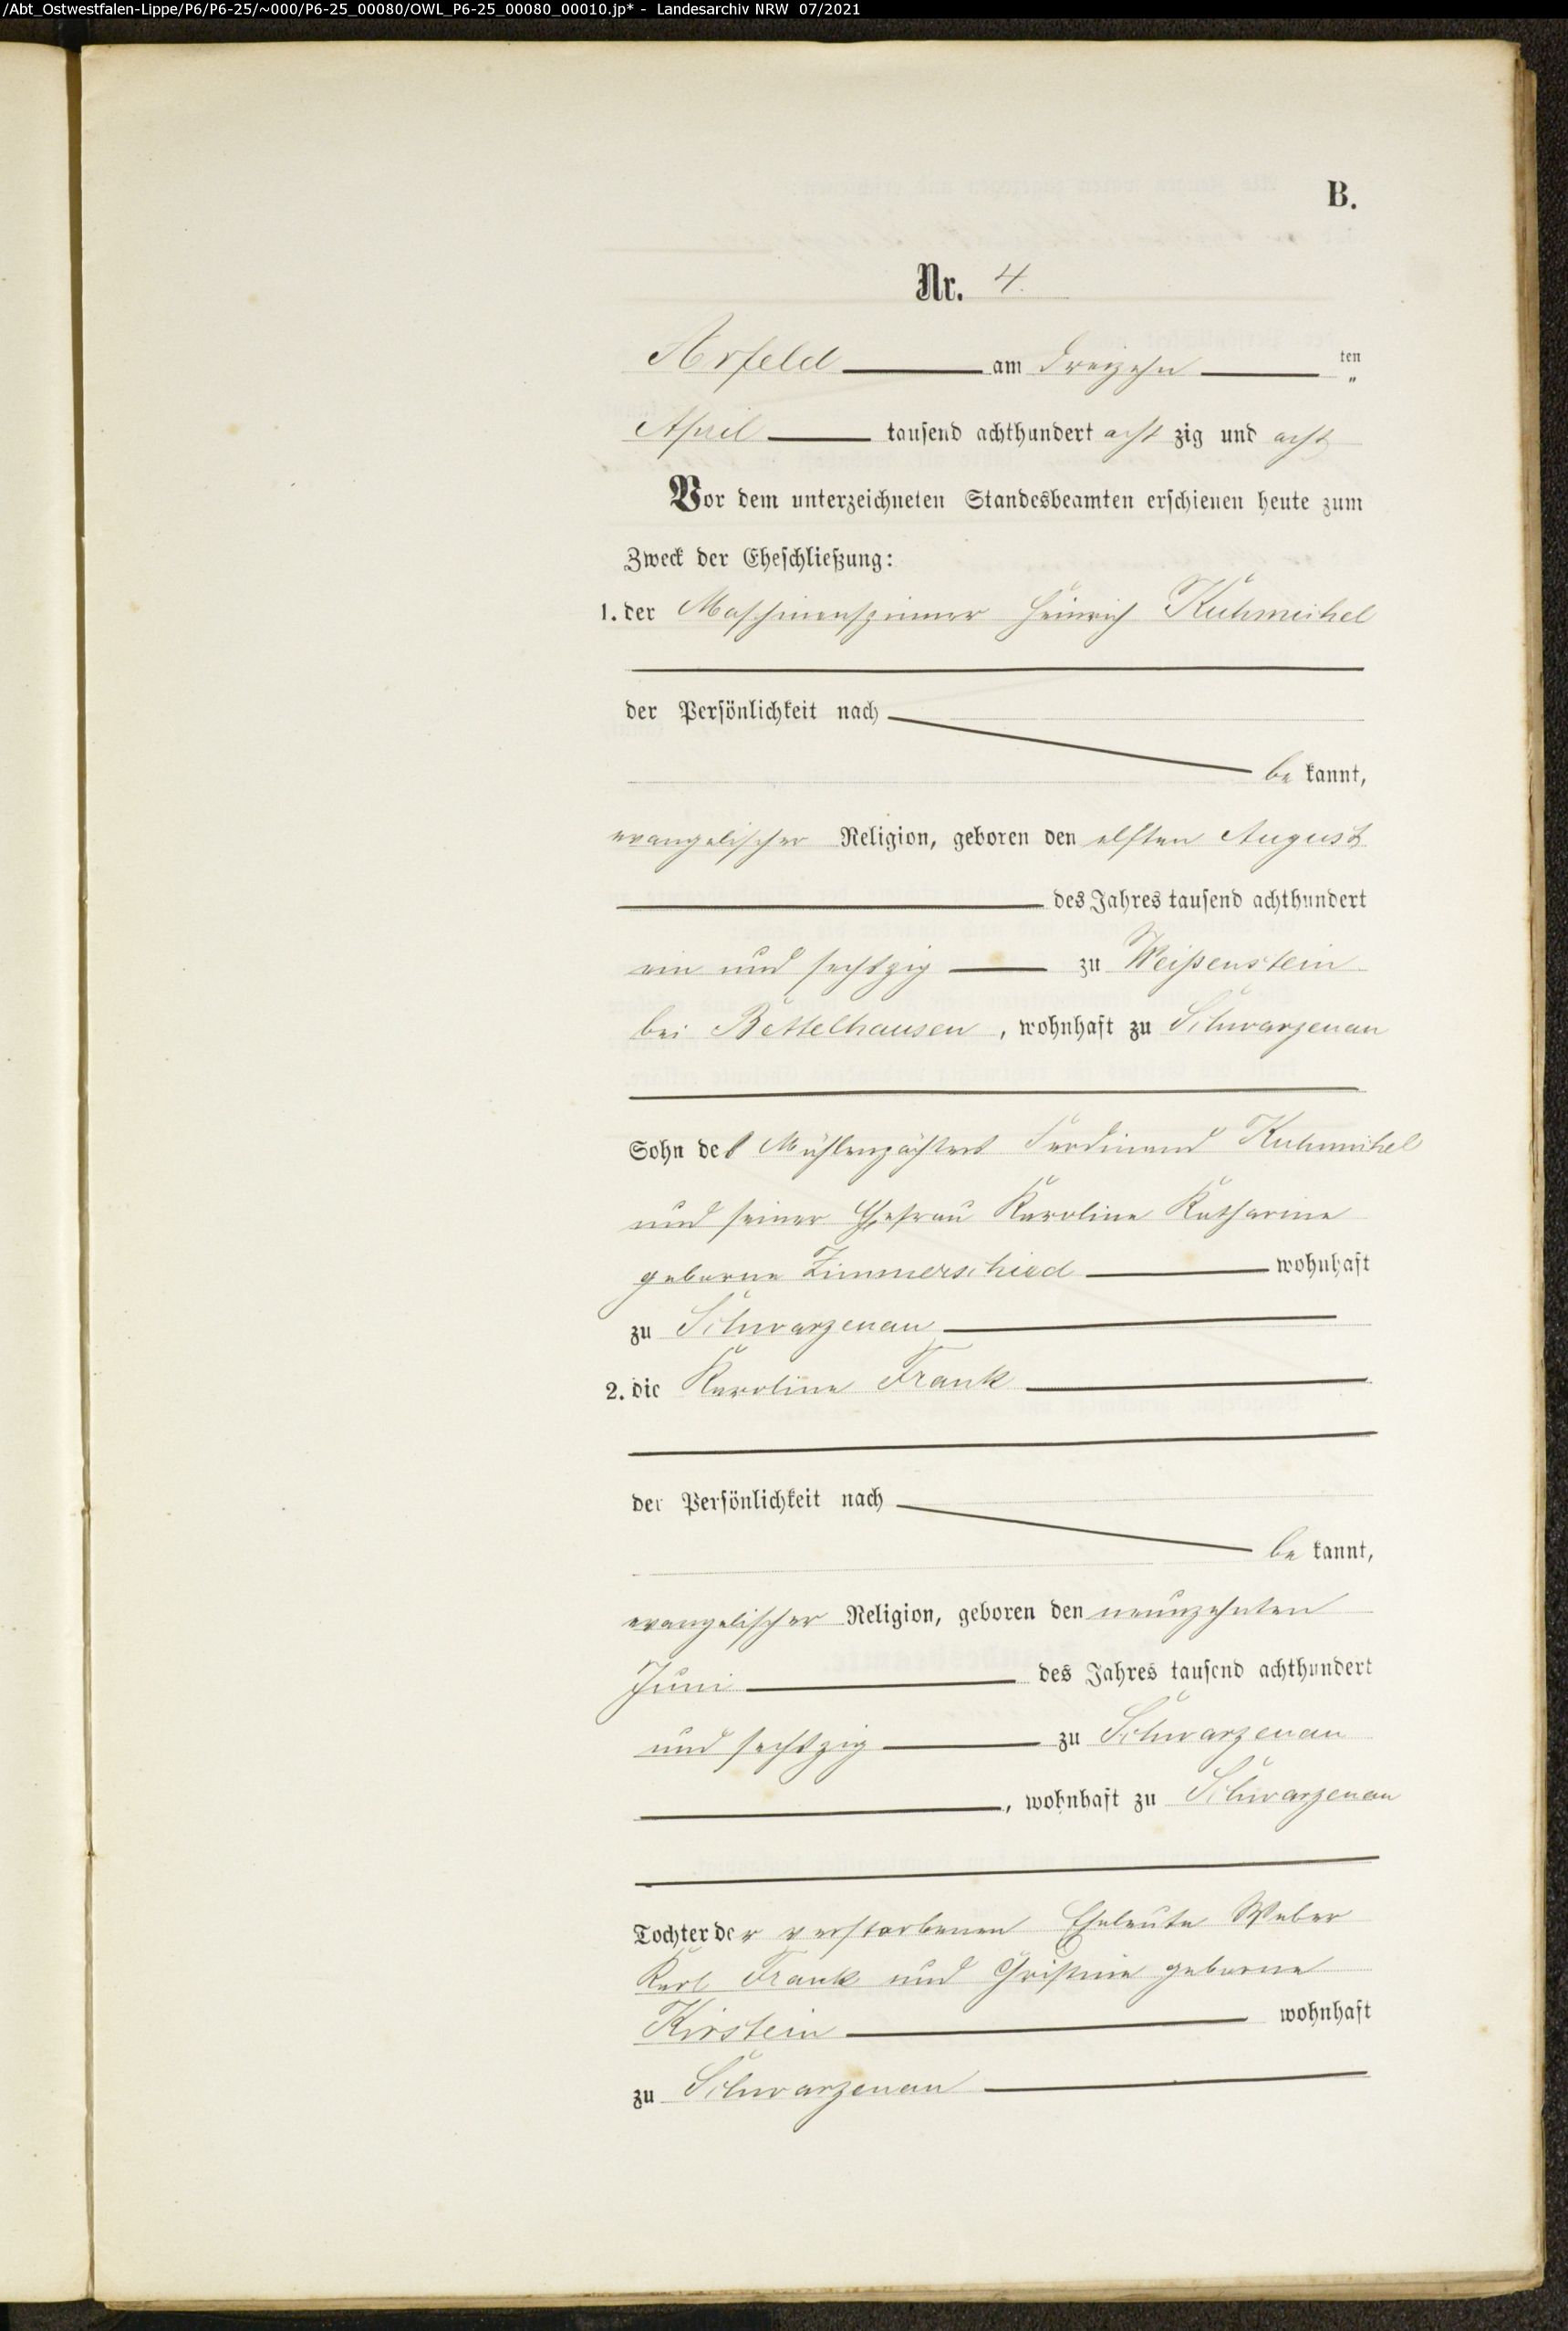 /Abt_Ostwestfalen-Lippe/P6/P6-25/~000/P6-25_00080/OWL_P6-25_00080_00010.jp* - Landesarchiv NRW 07/2021
B.
Nr. 4.
Arfeld am dreizehn ten
April tausend achthundert acht zig und acht
Vor dem unterzeichneten Standesbeamten erschienen heute zum
Zweck der Eheschließung:
1. der Maschinenspinner Heinrich Kuhmichel
der Persönlichkeit nach
be kannt,
evangelischer Religion, geboren den elften August
des Jahres tausend achthundert
ein und sechszig zu Weißenstein
bei Bettelhausen, wohnhaft zu Schwarzenau
Sohn des Mühlenpächters Ferdinand Kuhmichel
und seiner Ehefrau Karoline Katharine
geborne Zimmerschied wohnhaft
zu Schwarzenau
2. die Karoline Frank
der Persönlichkeit nach
be kannt,
evangelischer Religion, geboren den neunzehnten
Juni des Jahres tausend achthundert
und sechszig zu Schwarzenau
, wohnhaft zu Schwarzenau
Tochter der verstorbenen Eheleute Weber
Karl Frank und Christine geborne
Kirstein wohnhaft
zu Schwarzenau